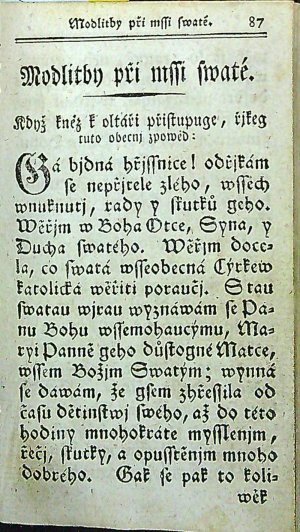 Modlitby při mssi swaté. 87
Modlitby při mssi swaté.
Když kněz k oltáři přistupuge, řjkeg
tuto obecnj zpowěd:
Gá bjdná hřjssnice! odřjkám
se nepřjtele zlého, wssech
wnuknutj, rady y skutků geho.
Wěřjm w Boha Otce, Syna, y
Ducha swatého. Wěřjm doce-
la, co swatá wsseobecná Cýrkew
katolická wěřiti poraučj. S tau
swatau wjrau wyznáwám se Pá-
nu Bohu wssemohaucýmu, Ma-
ryi Panně geho důstogné Matce,
wssem Božjm Swatým; wynná
se dáwám, že gsem zhřessila od
času dětinstwj swého, až do této
hodiny mnohokráte mysslenjm,
řečj, skutky, a opusstěnjm mnoho
dobrého. Gak se pak to koli-
wěk